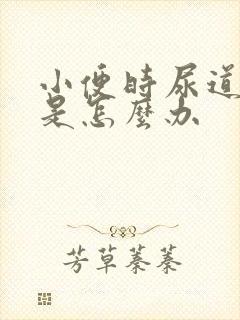 小便时尿道
是怎麽办
芳草萋萋